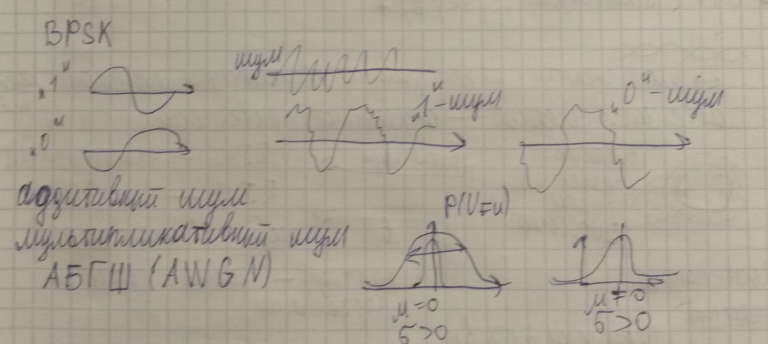 BPSK
„1"
шум
„1"-шум
„0"-шум
„0"
аддитивный шум
мультипликативный шум
P(V=u)
АБГШ (AWGN)
μ=0
σ>0
μ≠0
σ>0